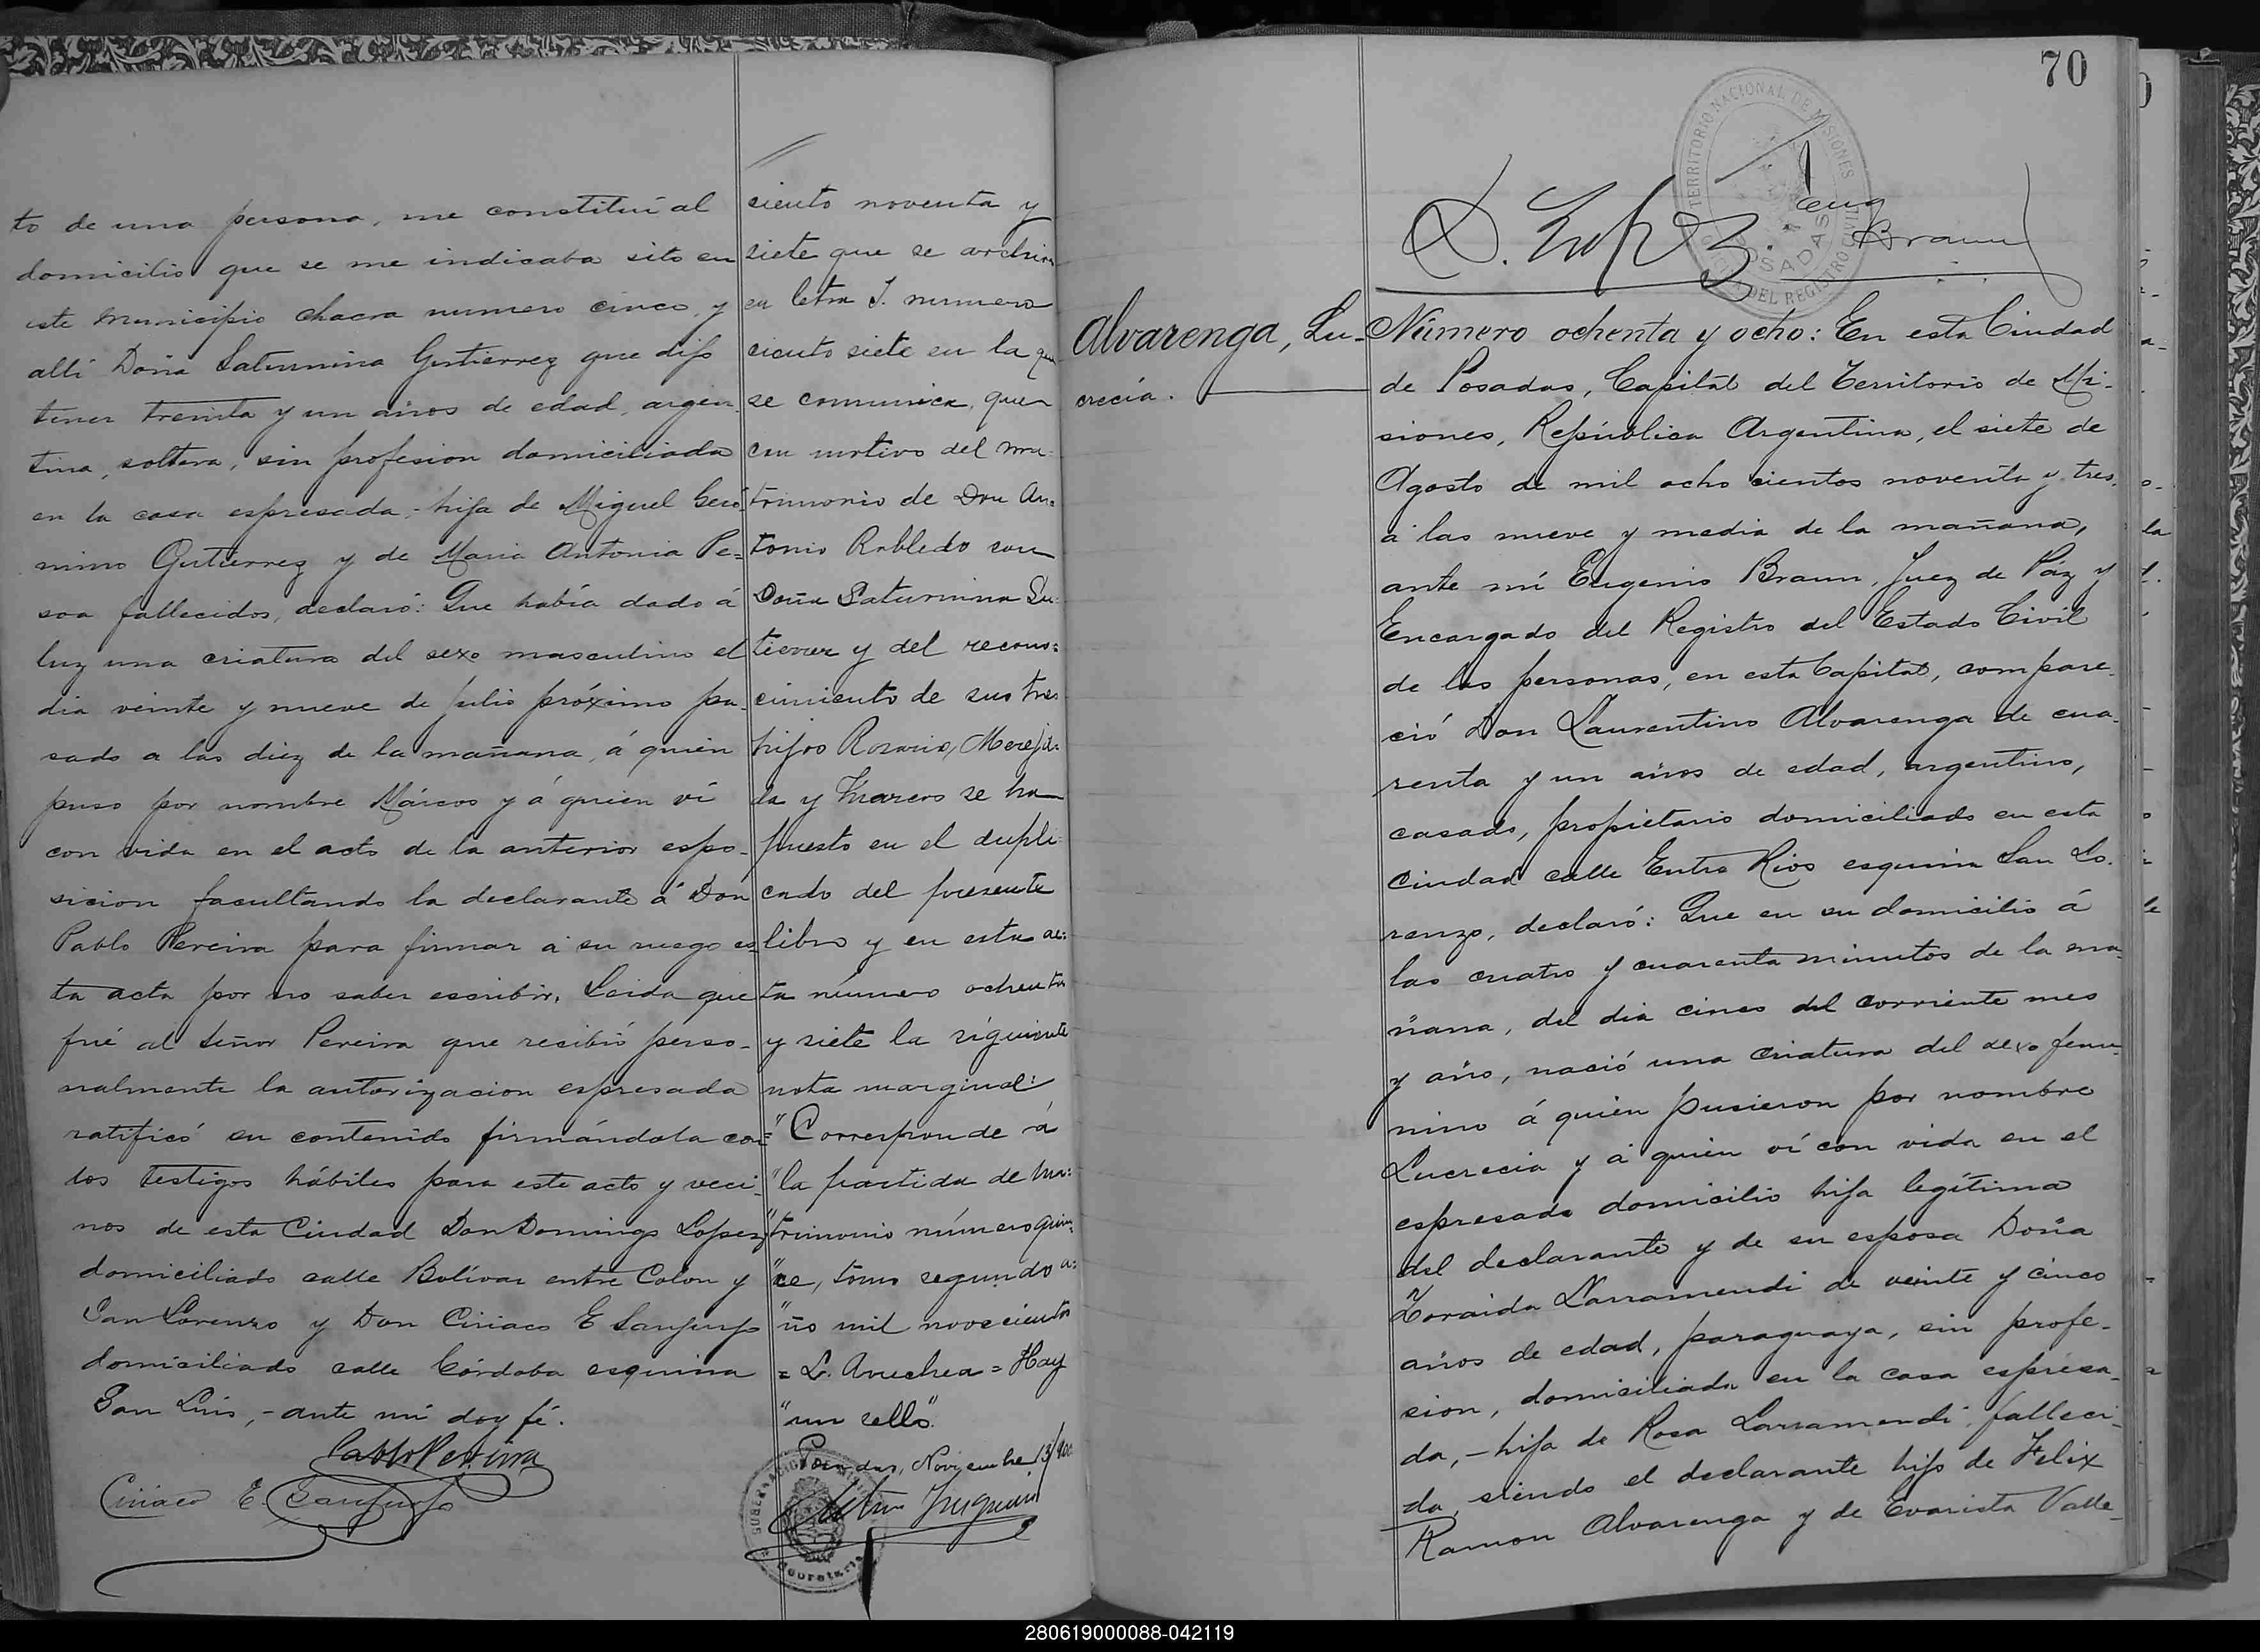 to de una persona, me constituí al
domicilio que se me indicaba sito en
este Municipio chacra numero cinco, y
allí Doña Saturnina Gutierrez que dijo
tener treinta y un años de edad, argen-
tina, soltera, sin profesion domiciliada
en la casa espresada, - hija de Miguel Geró
nimo Gutierrez y de Maria Antonia Pe=
soa fallecidos, declaró: Que había dado á
luz una criatura del sexo masculino el
dia veinte y nueve de Julio próximo pa-
sado a las diez de la mañana, á quien
puso por nombre Márcos y á quien ví
con vida en el acto de la anterior espo-
sicion facultando la declarante á Don
Pablo Pereira para firmar á su ruego es-
ta acta por no saber escribir. Leida que
fué al Señor Pereira que recibió perso-
nalmente la autorizacion espresada
ratificó su contenido firmándola con
los testigos hábiles para este acto y veci-
nos de esta Ciudad Don Domingo Lopez
domiciliado calle Bolívar entre Colon y
San Lorenzo y Don Ciriaco E Sanjurjo
domiciliado calle Córdoba esquina
San Luis, - ante mí doy fé.
Pablo Pereira
Ciriaco E. Sanjurjo
ciento noventa y
siete que se archiva
en letra J. numero
ciento siete en la que
se comunica, que
con motivo del ma=
trimonio de Don An=
tonio Robledo con
Doña Saturnina Gu=
tierrez y del recono=
cimiento de sus tres
hijos Rosario, Merejil=
da y Marcos se ha
puesto en el dupli=
cado del presente
libro y en esta ac=
ta número ochenta
y siete la siguiente
nota marginal:
"Corresponde á
"la partida de ma=
"trimonio número quin=
"ce, tomo segundo a=
"ño mil novecientos
= L. Aruchea = Hay
"un sello".
Posadas, Noviembre 13/900
GOBERNACION
Secretaria
70
TERRITORIO NACIONAL DE MISIONES
POSADAS
OFICINA DEL REGISTRO CIVIL
Eug Braun
Alvarenga, Lu-
crecia.
Número ochenta y ocho: En esta Ciudad
de Posadas, Capital del Territorio de Mi-
siones, República Argentina, el siete de
Agosto de mil ocho cientos noventa y tres,
á las nueve y media de la mañana,
ante mí Eugenio Braun, Juez de Páz y
Encargado del Registro del Estado Civil
de las personas, en esta Capital, compare-
ció Don Laurentino Alvarenga de cua-
renta y un años de edad, argentino,
casado, propietario domiciliado en esta
Ciudad calle Entre Rios esquina San Lo-
renzo, declaró: Que en su domicilio á
las cuatro y cuarenta minutos de la ma-
ñana, del dia cinco del corriente mes
y año, nació una criatura del sexo feme-
nino á quien pusieron por nombre
Lucrecia y á quien ví con vida en el
espresado domicilio hija legítima
del declarante y de su esposa Doña
Zoraida Larramendi de veinte y cinco
años de edad, paraguaya, sin profe-
sion, domiciliada en la casa espresa-
da, - hija de Rosa Larramendi, falleci-
da, siendo el declarante hijo de Felix
Ramon Alvarenga y de Evarista Valle-
280619000088-042119